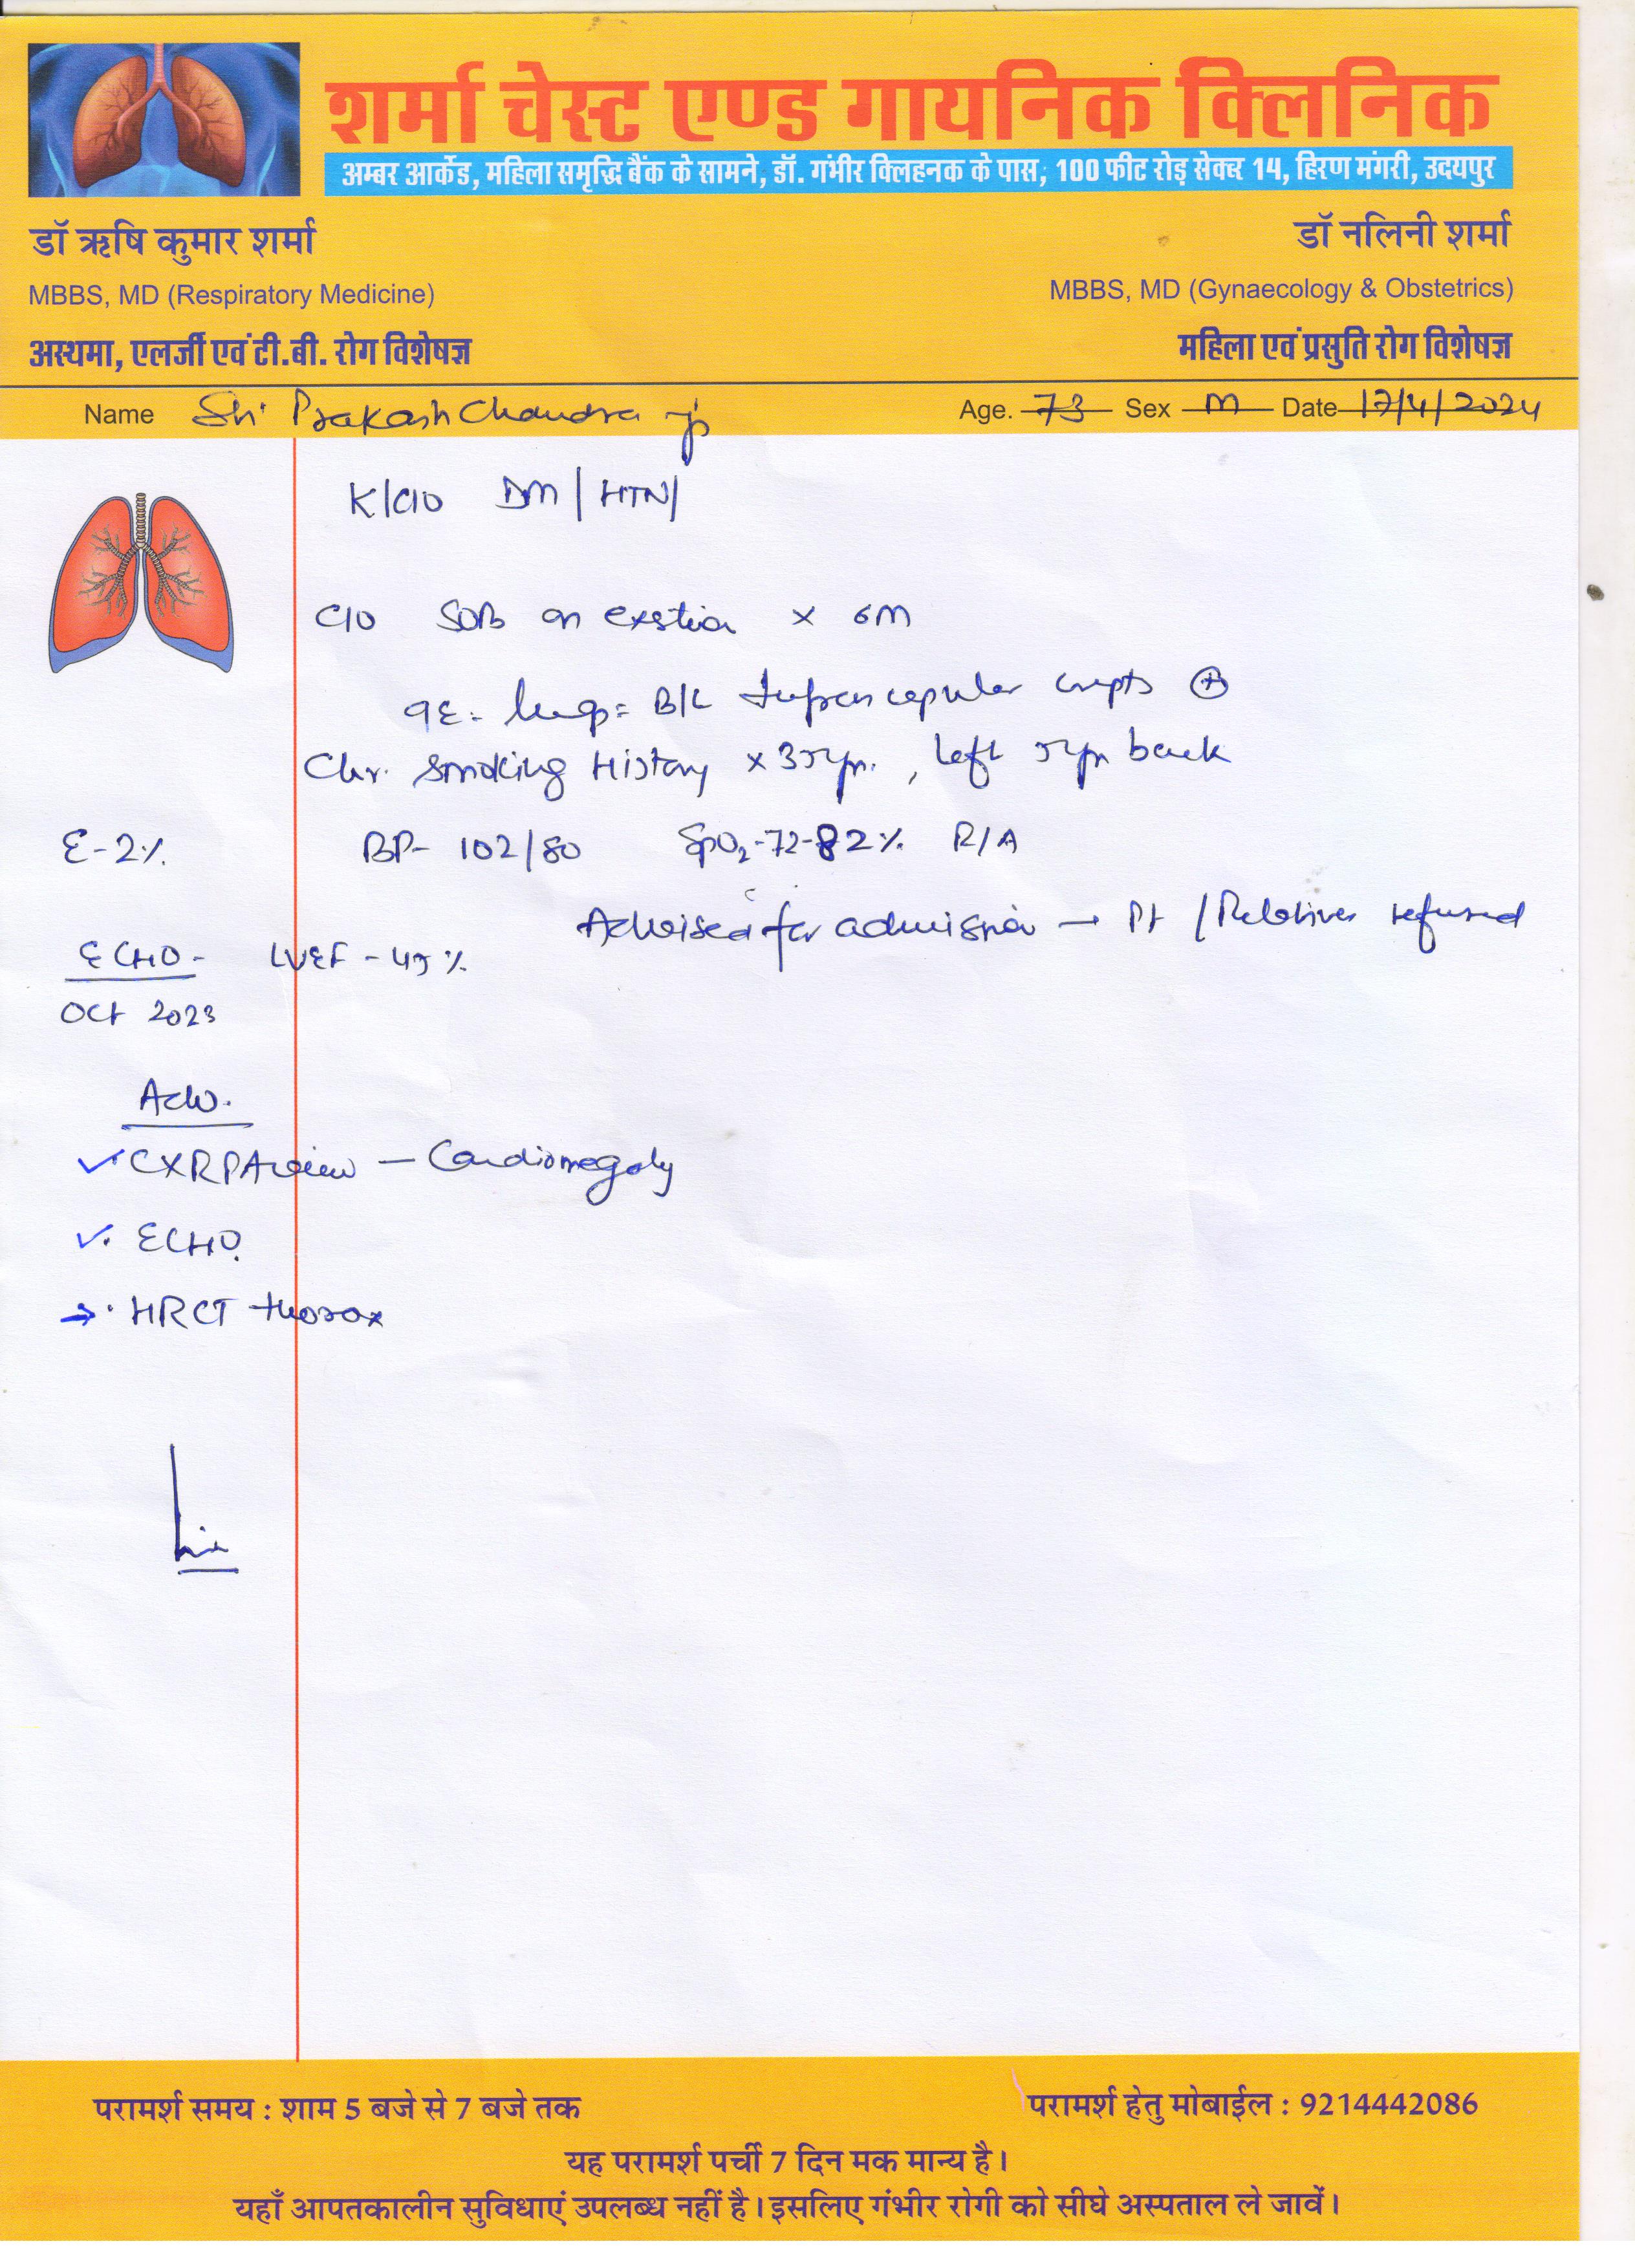 शर्मा चेस्ट एण्ड गायनिक क्लिनिक
अम्बर आर्केड, महिला समृद्धि बैंक के सामने, डॉ. गंभीर क्लिहनक के पास, 100 फीट रोड़ सेक्टर 14, हिरण मंगरी, उदयपुर
डॉ ऋषि कुमार शर्मा
MBBS, MD (Respiratory Medicine)
अस्थमा, एलर्जी एवं टी.बी. रोग विशेषज्ञ
डॉ नलिनी शर्मा
MBBS, MD (Gynaecology & Obstetrics)
महिला एवं प्रसुति रोग विशेषज्ञ
Name Sh. Prakash Chandra ji Age. 73 Sex M Date 17/4/2024
K/C/O DM / HTN/
C/O SOB on exertion x 6M
Lung = B/L Infrascapular crepts +
Chr. Smoking History x 35 yr., left 5 yr back
E-2% BP- 102/80 SpO2-72-82% R/A
Advised for admission → Pt / Relatives refused
ECHO - LVEF - 45%
Oct 2023
Adv.
✓ CXR PA view — Cardiomegaly
✓ ECHO
→ HRCT thorax
परामर्श समय : शाम 5 बजे से 7 बजे तक
परामर्श हेतु मोबाईल : 9214442086
यह परामर्श पर्ची 7 दिन मक मान्य है।
यहाँ आपतकालीन सुविधाएं उपलब्ध नहीं है। इसलिए गंभीर रोगी को सीघे अस्पताल ले जावें।